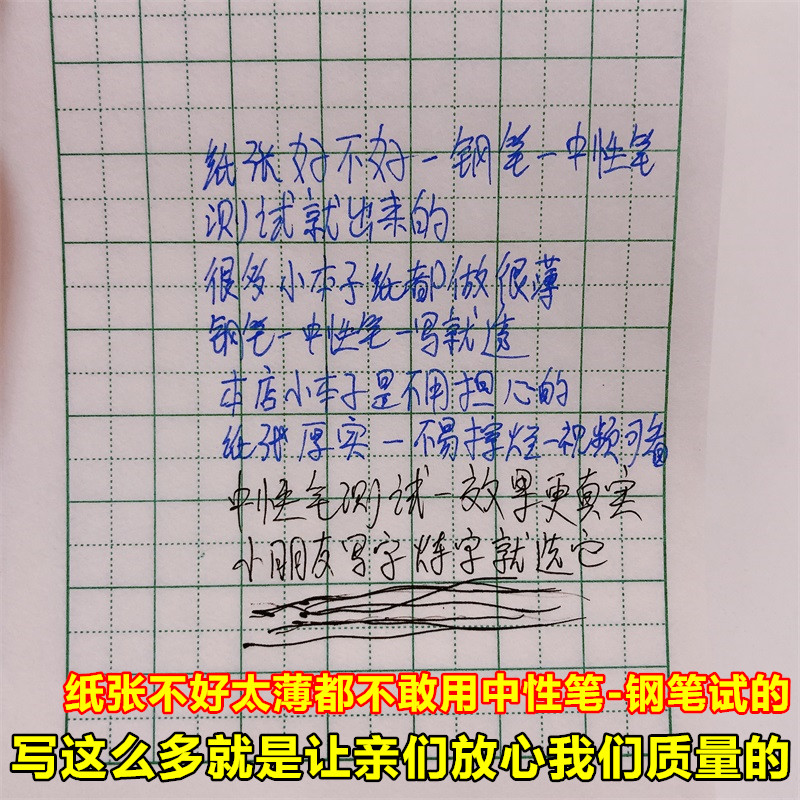 纸张好不好-钢笔-中性笔
测试就出来的
很多小本子纸都做很薄
钢笔-中性笔-写就透
本店小本子是不用担心的
纸张厚实-不易擦烂-视频可看
中性笔测试-效果更真实
小朋友写字炼字就选它
纸张不好太薄都不敢用中性笔-钢笔试的
写这么多就是让亲们放心我们质量的